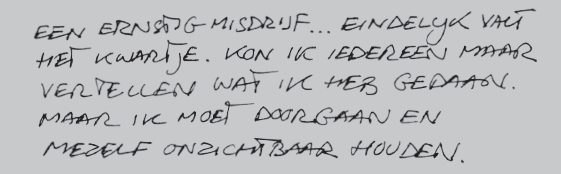 EEN ERNSTIG MISDRIJF... EINDELIJK VALT
HET KWARTJE. KON IK IEDEREEN MAAR
VERTELLEN WAT IK HEB GEDAAN.
MAAR IK MOET DOORGAAN EN
MEZELF ONZICHTBAAR HOUDEN.